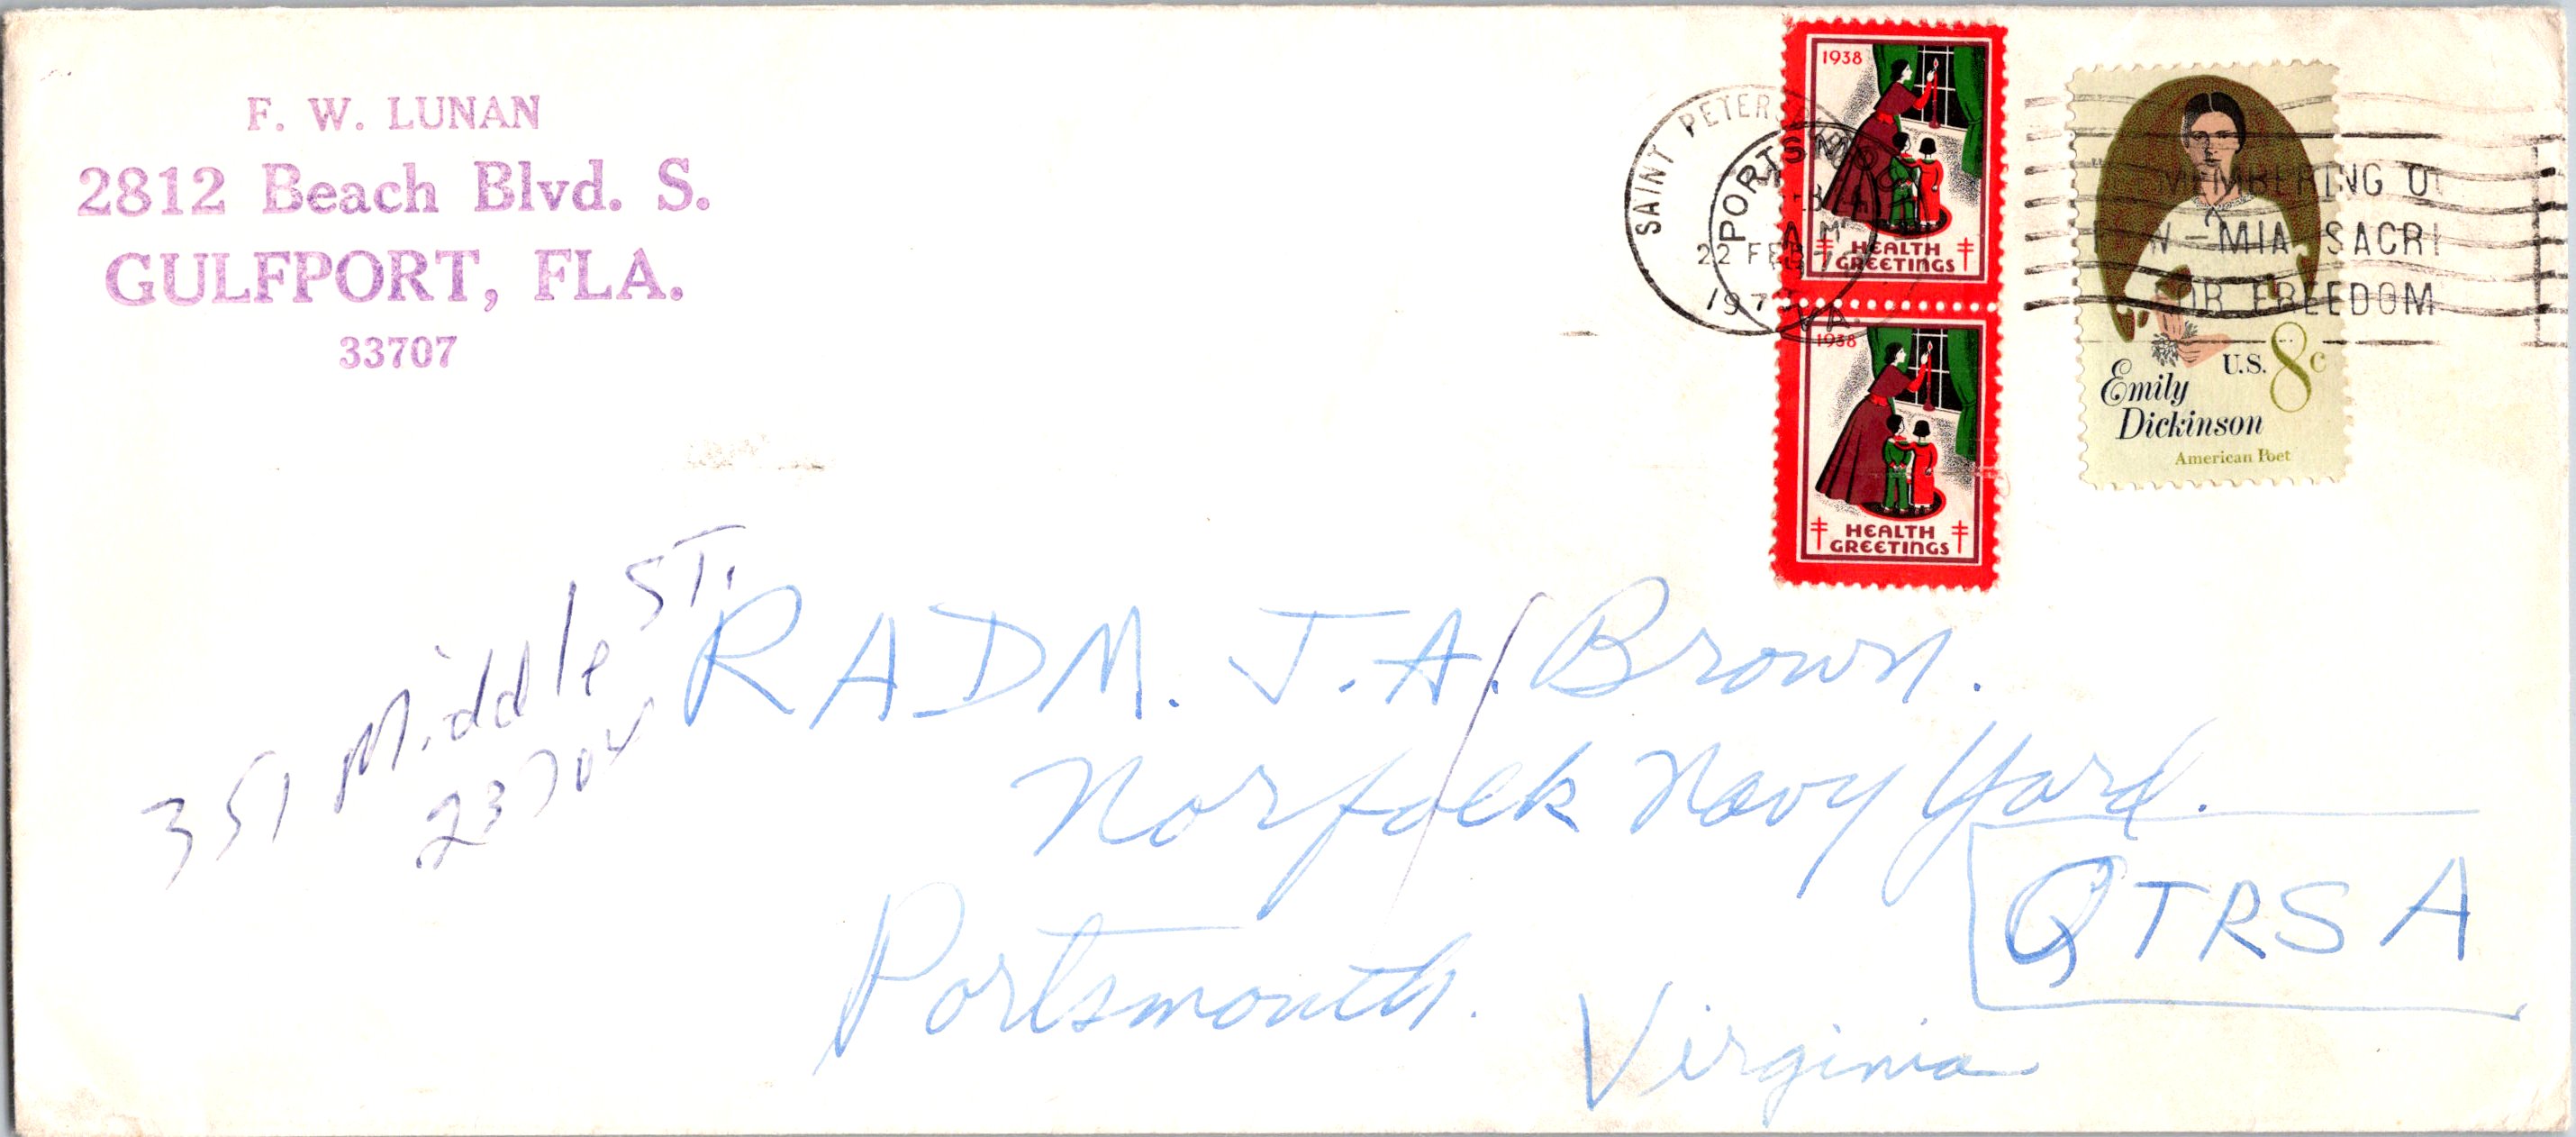 F. W. LUNAN
2812 Beach Blvd. S.
GULFPORT, FLA.
33707
SAINT PETERSBURG
22 FEB
197
PORTSMO
AM
VA.
1938
HEALTH
GREETINGS
1938
HEALTH
GREETINGS
MEMBERING
W-MIA SACRI
OR FREEDOM
U.S. 8c
Emily
Dickinson
American Poet
351 Middle ST.
23704
RADM. J. A. Brown.
Norfolk Navy Yard.
QTRS A
Portsmouth.
Virginia